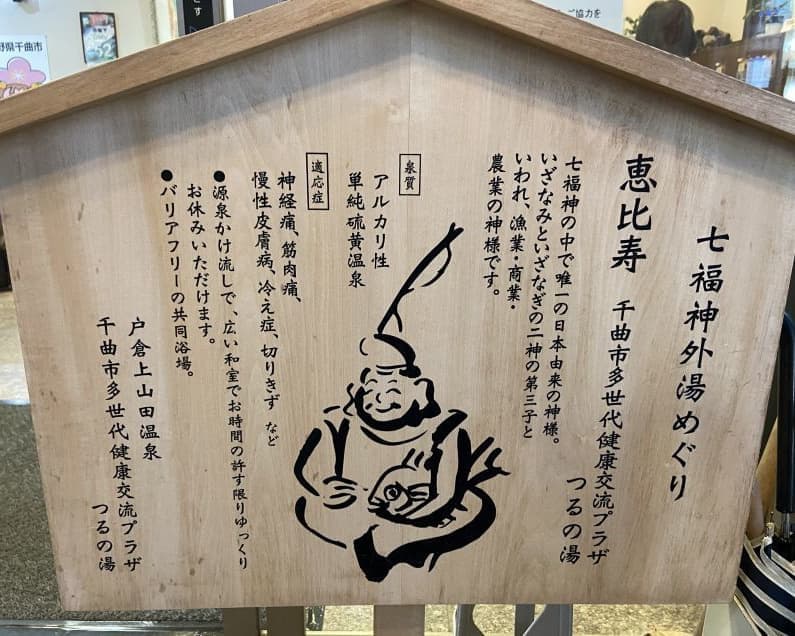 七福神外湯めぐり
恵比寿
千曲市多世代健康交流プラザ
つるの湯
七福神の中で唯一の日本由来の神様。
いざなみといざなぎの二神の第三子と
いわれ、漁業・商業・
農業の神様です。
泉質
アルカリ性
単純硫黄温泉
適応症
神経痛、筋肉痛、
慢性皮膚病、冷え症、切りきず など
●源泉かけ流しで、広い和室でお時間の許す限りゆっくり
お休みいただけます。
●バリアフリーの共同浴場。
戸倉上山田温泉
千曲市多世代健康交流プラザ
つるの湯
野県千曲市
ご協力を